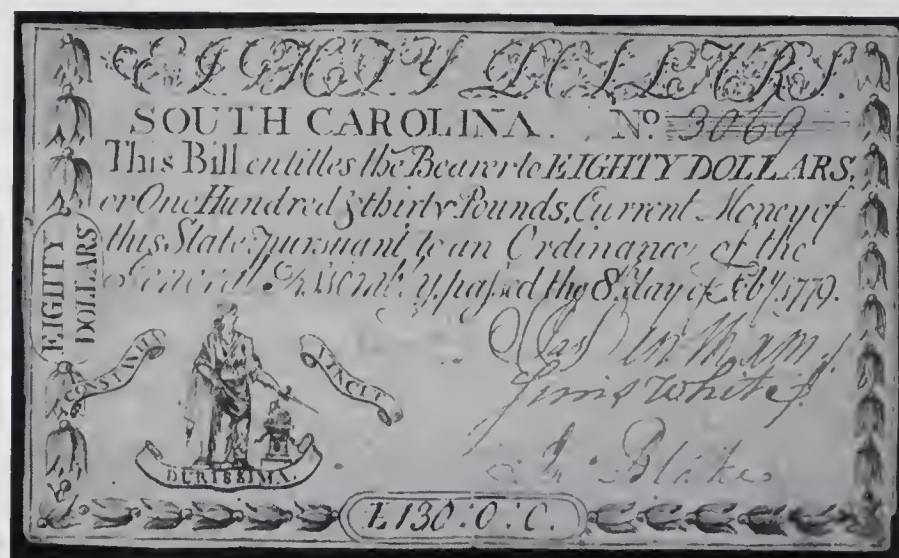 EIGHTY DOLLARS.
SOUTH CAROLINA. No. 3069
This Bill entitles the Bearer to EIGHTY DOLLARS,
or One Hundred & thirty Pounds, Current Money of
this State, pursuant to an Ordinance, of the
General Assembly, passed the 8 day of Feby. 1779.
EIGHTY
DOLLARS
CONSTANTIA
VINCIT
DURISSIMA.
White
Blake
£130:0:0.